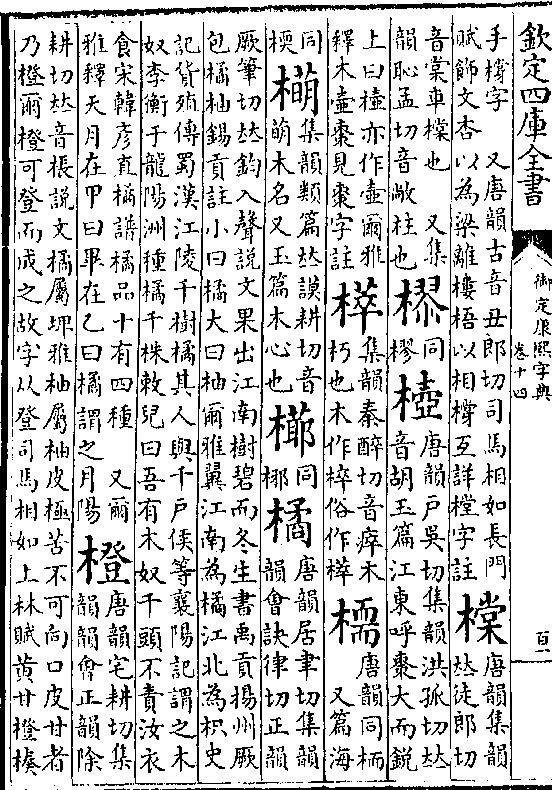 欽定四庫全書
御定康熙字典
卷十四
百一
手橕字　又唐韻古音丑郎切司馬相如長門
賦飾文杏以為梁離樓梧以相橕互詳樘字註
橖
唐韻集韻
𠀤徒郎切
音棠車橖也　又集
韻恥孟切音敞柱也
同
樛
唐韻戶吳切集韻洪孤切𠀤
音胡玉篇江東呼棗大而銳
上曰　亦作壺爾雅
釋木壺棗見棗字註
集韻秦醉切音瘁木
朽也本作椊俗作
唐韻同栭
又篇海
同
梗
橗
集韻類篇𠀤謨耕切音
萌木名又玉篇木心也
同
橘
唐韻居聿切集韻
韻會訣律切正韻
厥筆切𠀤鈞入聲說文果出江南樹碧而冬生書禹貢揚州厥
包橘柚錫貢註小曰橘大曰柚爾雅翼江南為橘江北為枳史
記貨殖傳蜀漢江陵千樹橘其人與千戶侯等襄陽記謂之木
奴李衡于龍陽洲種橘千株敕兒曰吾有木奴千頭不責汝衣
食宋韓彥直橘譜橘品十有四種　又爾
雅釋天月在甲曰畢在乙曰橘謂之月陽
橙
唐韻宅耕切集
韻韻會正韻除
耕切𠀤音棖說文橘屬埤雅柚屬柚皮極苦不可向口皮甘者
乃橙爾橙可登而成之故字从登司馬相如上林賦黃甘橙楱